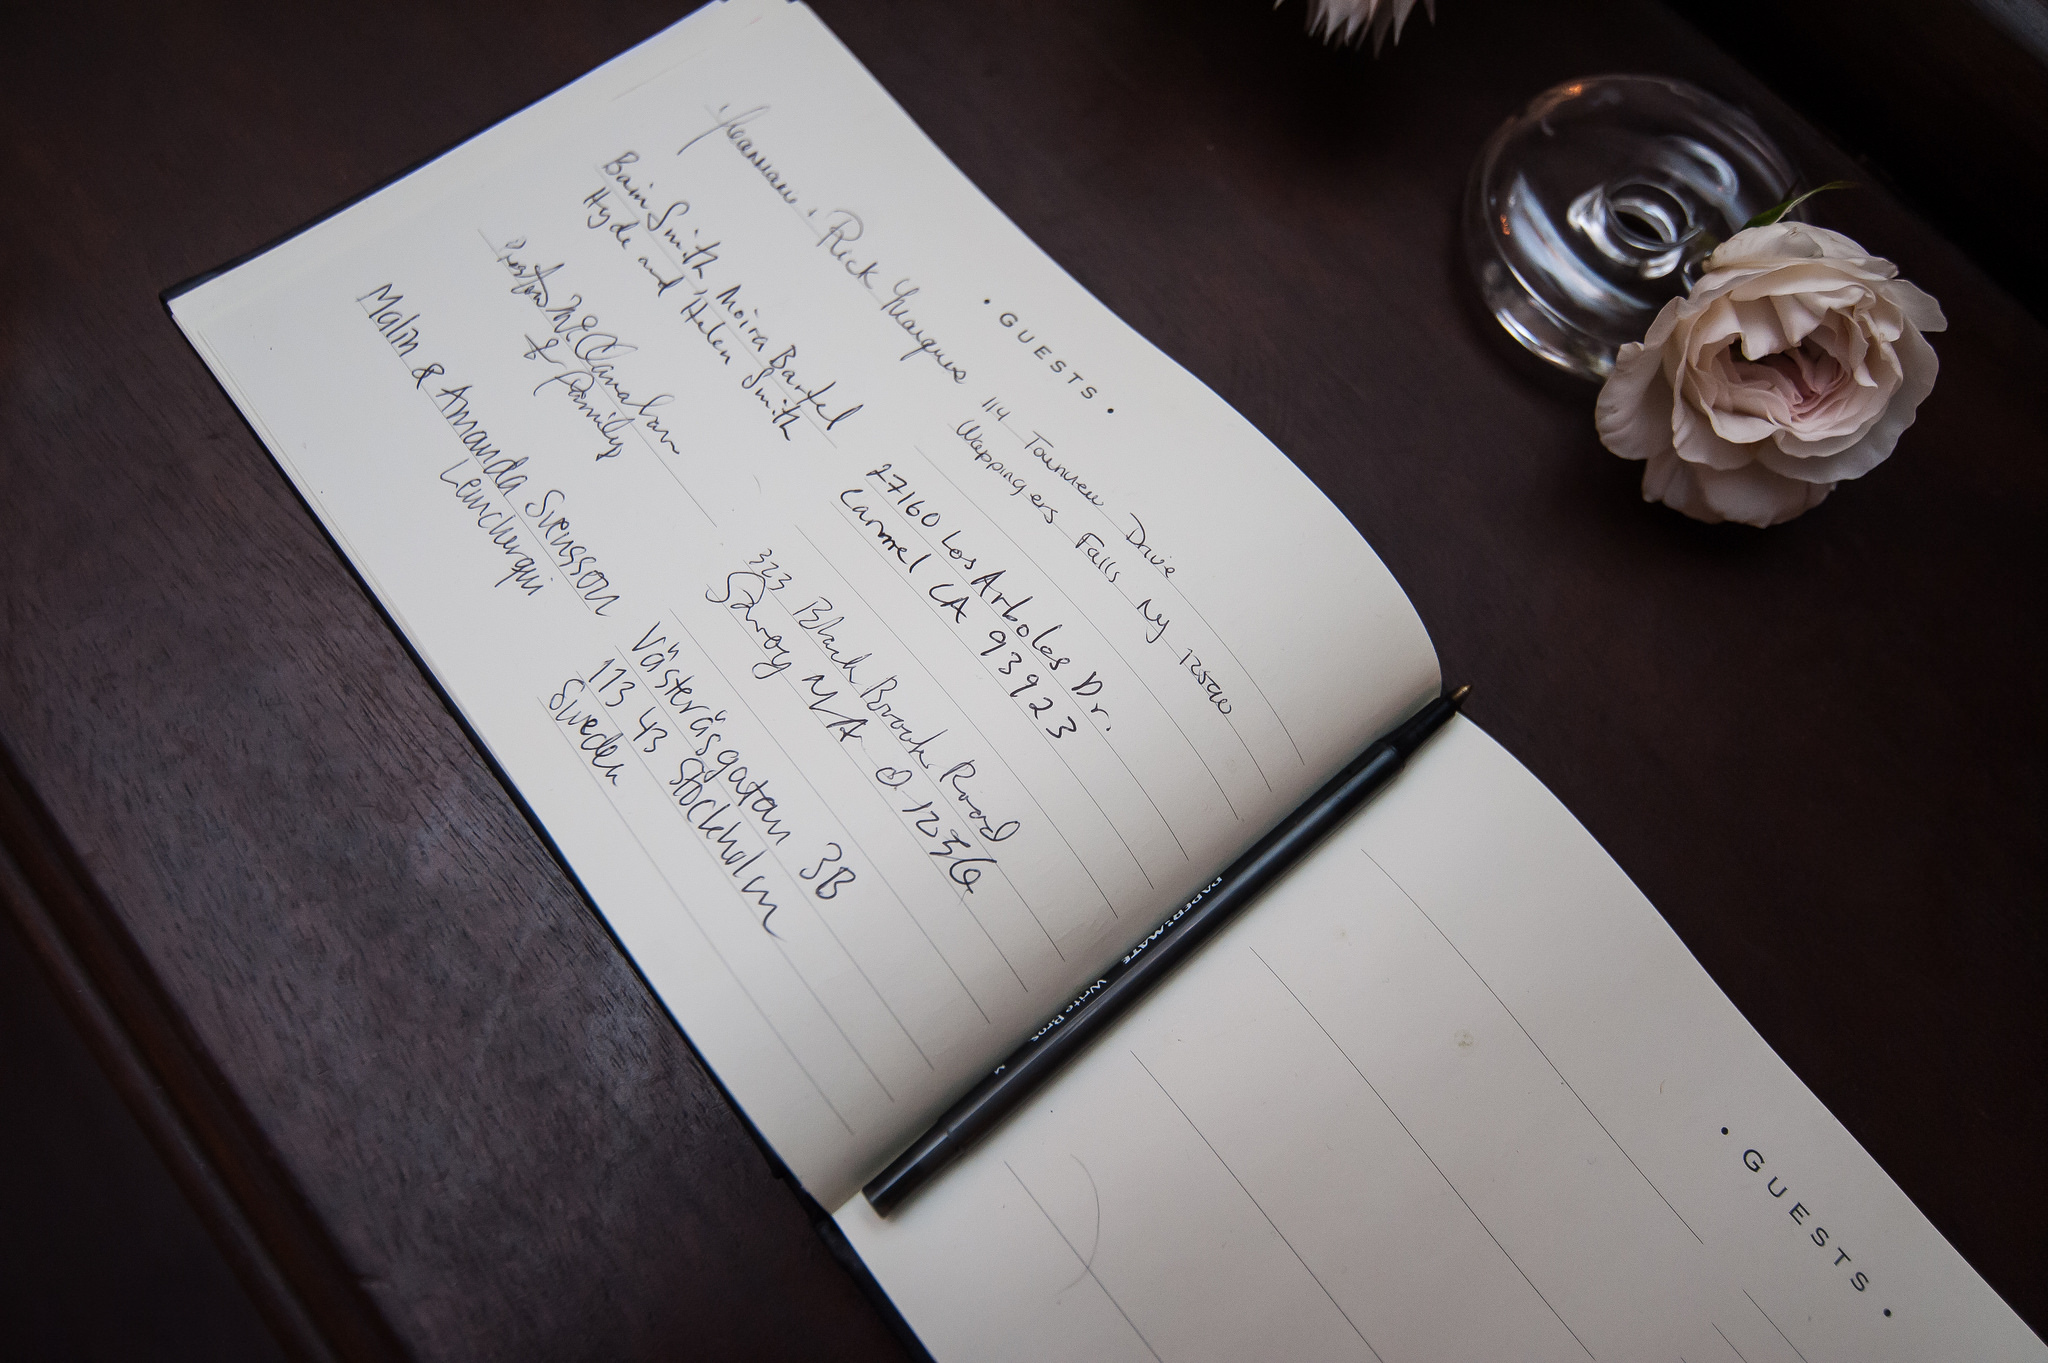 • GUESTS •
Rick Marquis
114 Townview Drive
Wappingers Falls NY
Bain Smith, Moira Bartel
Hyde and Helen Smith
27160 Los Arboles Dr.
Carmel CA 93923
Preston McClanahan
& family
323 Black Brook Road
Savoy MA 01256
Malin & Amanda Svensson
Västeråsgatan 3B
113 43 Stockholm
Sweden
PAPER:MATE Write Bros M
• GUESTS •